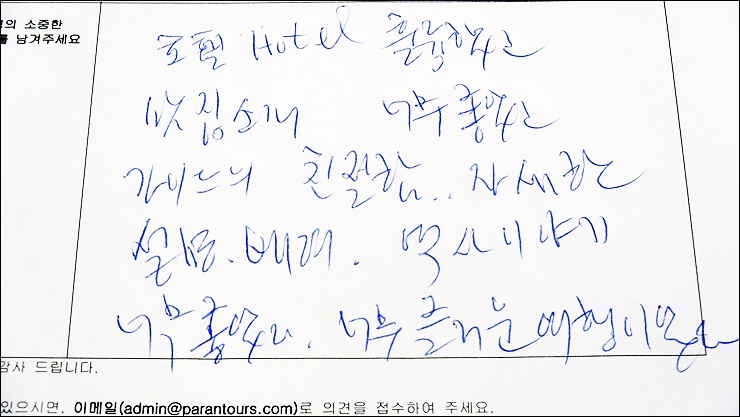 의 소중한
를 남겨주세요
호텔 Hotel 훌륭했고
맛집소개 너무 좋았고
가이드의 친절함.. 자세한
설명. 배려. 역사이야기
너무 좋았고. 너무 즐거운 여행이었다
감사 드립니다.
있으시면, 이메일(admin@parantours.com)로 의견을 접수하여 주세요.